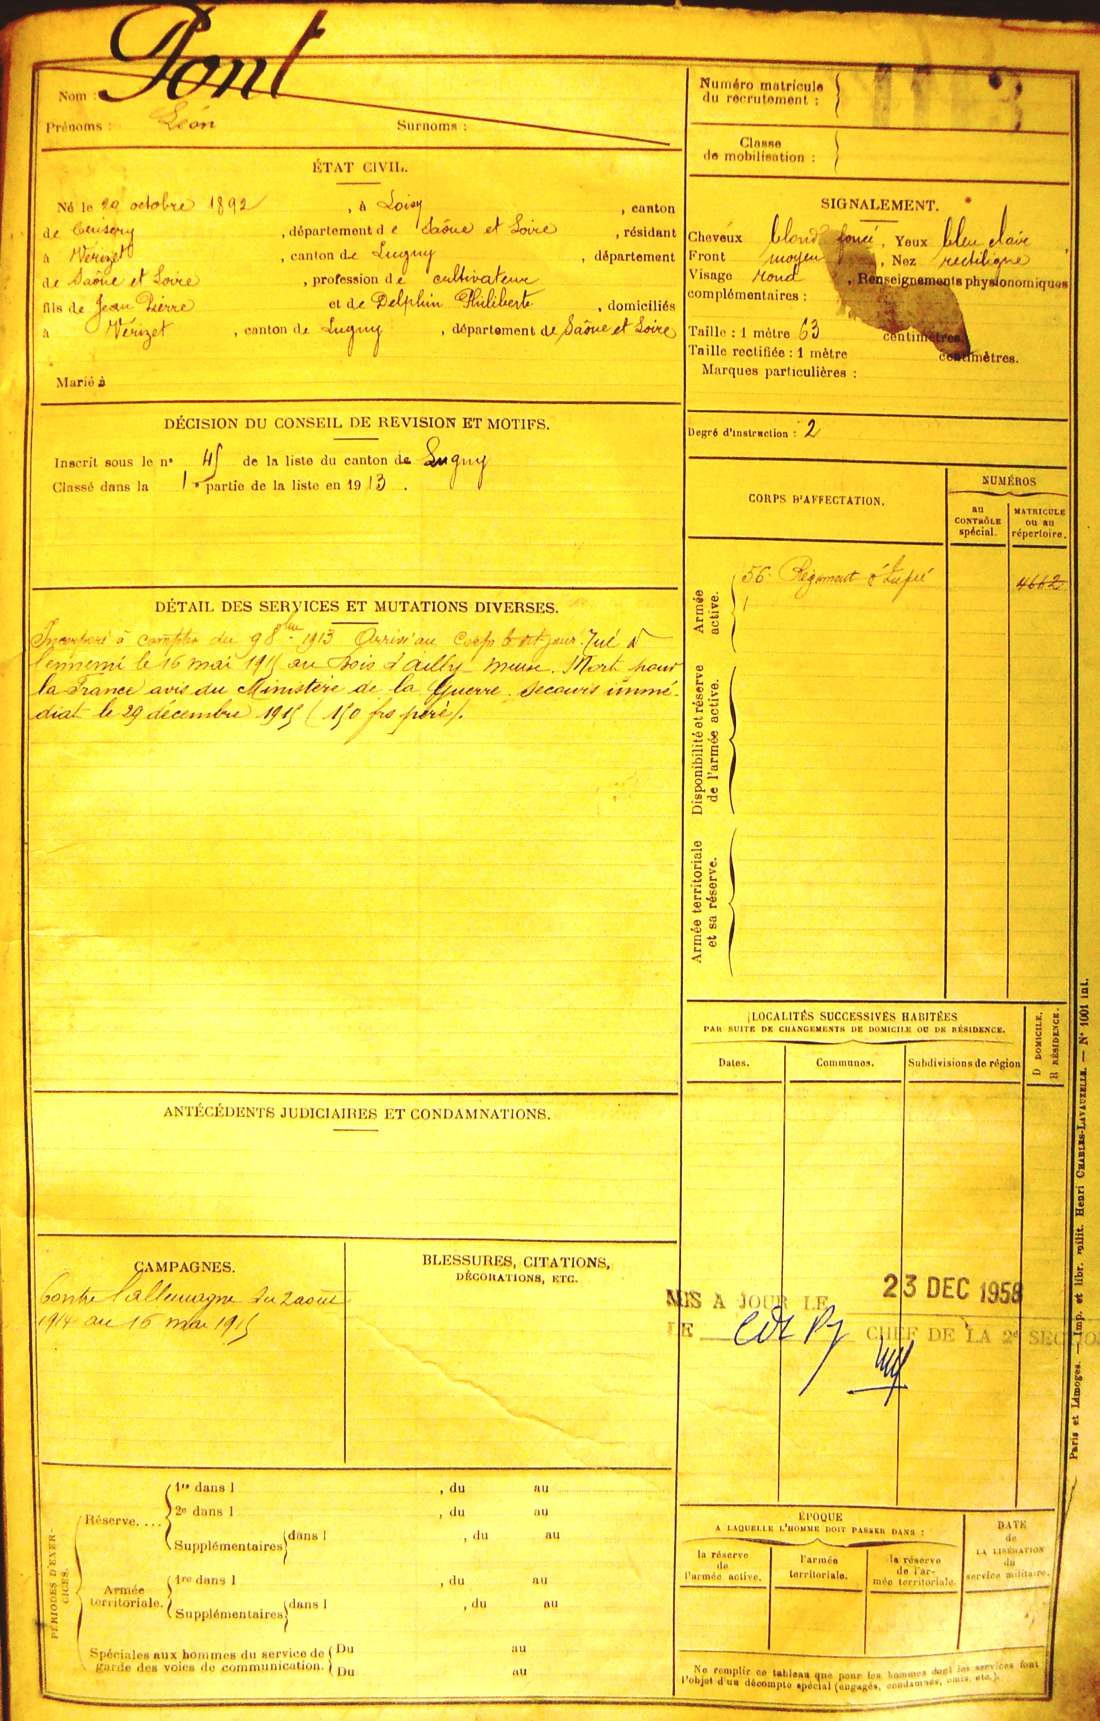 Nom : Pont
Prénoms : Léon Surnoms :
ÉTAT CIVIL.
Né le 29 octobre 1892, à Loisy, canton
de Cuisery, département de Saône et Loire, résidant
à Vérizet, canton de Lugny, département
de Saône et Loire, profession de cultivateur
fils de Jean Pierre et de Delphin Philiberte, domiciliés
à Vérizet, canton de Lugny, département de Saône et Loire
Marié à
DÉCISION DU CONSEIL DE REVISION ET MOTIFS.
Inscrit sous le n° 45 de la liste du canton de Lugny
Classé dans la 1e partie de la liste en 1913.
DÉTAIL DES SERVICES ET MUTATIONS DIVERSES.
Incorporé à compter du 9 8bre 1913 Arrivé au Corps le dit jour. Tué à
l'ennemi le 16 mai 1915 au bois d'ailly Meuse. Mort pour
la France avis du Ministère de la Guerre. Secours immé-
diat le 29 décembre 1915 (150 frs père).
ANTÉCÉDENTS JUDICIAIRES ET CONDAMNATIONS.
CAMPAGNES.
Contre l'allemagne du 2 aout
1914 au 16 mai 1915
BLESSURES, CITATIONS,
DÉCORATIONS, ETC.
PÉRIODES D'EXER-
CICES.
Réserve....
1re dans l , du au
2e dans l , du au
Supplémentaires dans l , du au
Armée
territoriale.
1re dans l , du au
Supplémentaires dans l , du au
Spéciales aux hommes du service de
garde des voies de communication.
Du au
Du au
Numéro matricule
du recrutement : 1103
Classe
de mobilisation :
SIGNALEMENT.
Cheveux blond foncé, Yeux bleu clair,
Front moyen, Nez rectiligne
Visage rond, Renseignements physionomiques
complémentaires :
Taille : 1 mètre 63 centimètres.
Taille rectifiée : 1 mètre centimètres.
Marques particulières :
Degré d'instruction : 2
CORPS D'AFFECTATION.
NUMÉROS
au
CONTRÔLE
spécial.
MATRICULE
ou au
répertoire.
Armée
active.
56e Régiment d'Infie 4662
Disponibilité et réserve
de l'armée active.
Armée territoriale
et sa réserve.
LOCALITÉS SUCCESSIVES HABITÉES
PAR SUITE DE CHANGEMENTS DE DOMICILE OU DE RÉSIDENCE.
D DOMICILE.
R RÉSIDENCE.
Dates. Communes. Subdivisions de région
MIS A JOUR LE 23 DEC 1958
LE CHEF DE LA 2e SECTION
ÉPOQUE
A LAQUELLE L'HOMME DOIT PASSER DANS :
la réserve
de
l'armée active.
l'armée
territoriale.
la réserve
de l'ar-
mée territoriale.
DATE
de
LA LIBÉRATION
du
service militaire.
Ne remplir ce tableau que pour les hommes dont les services font
l'objet d'un décompte spécial (engagés, condamnés, omis, etc.).
Paris et Limoges. — Imp. et libr. milit. Henri CHARLES-LAVAUZELLE. — N° 1001 int.